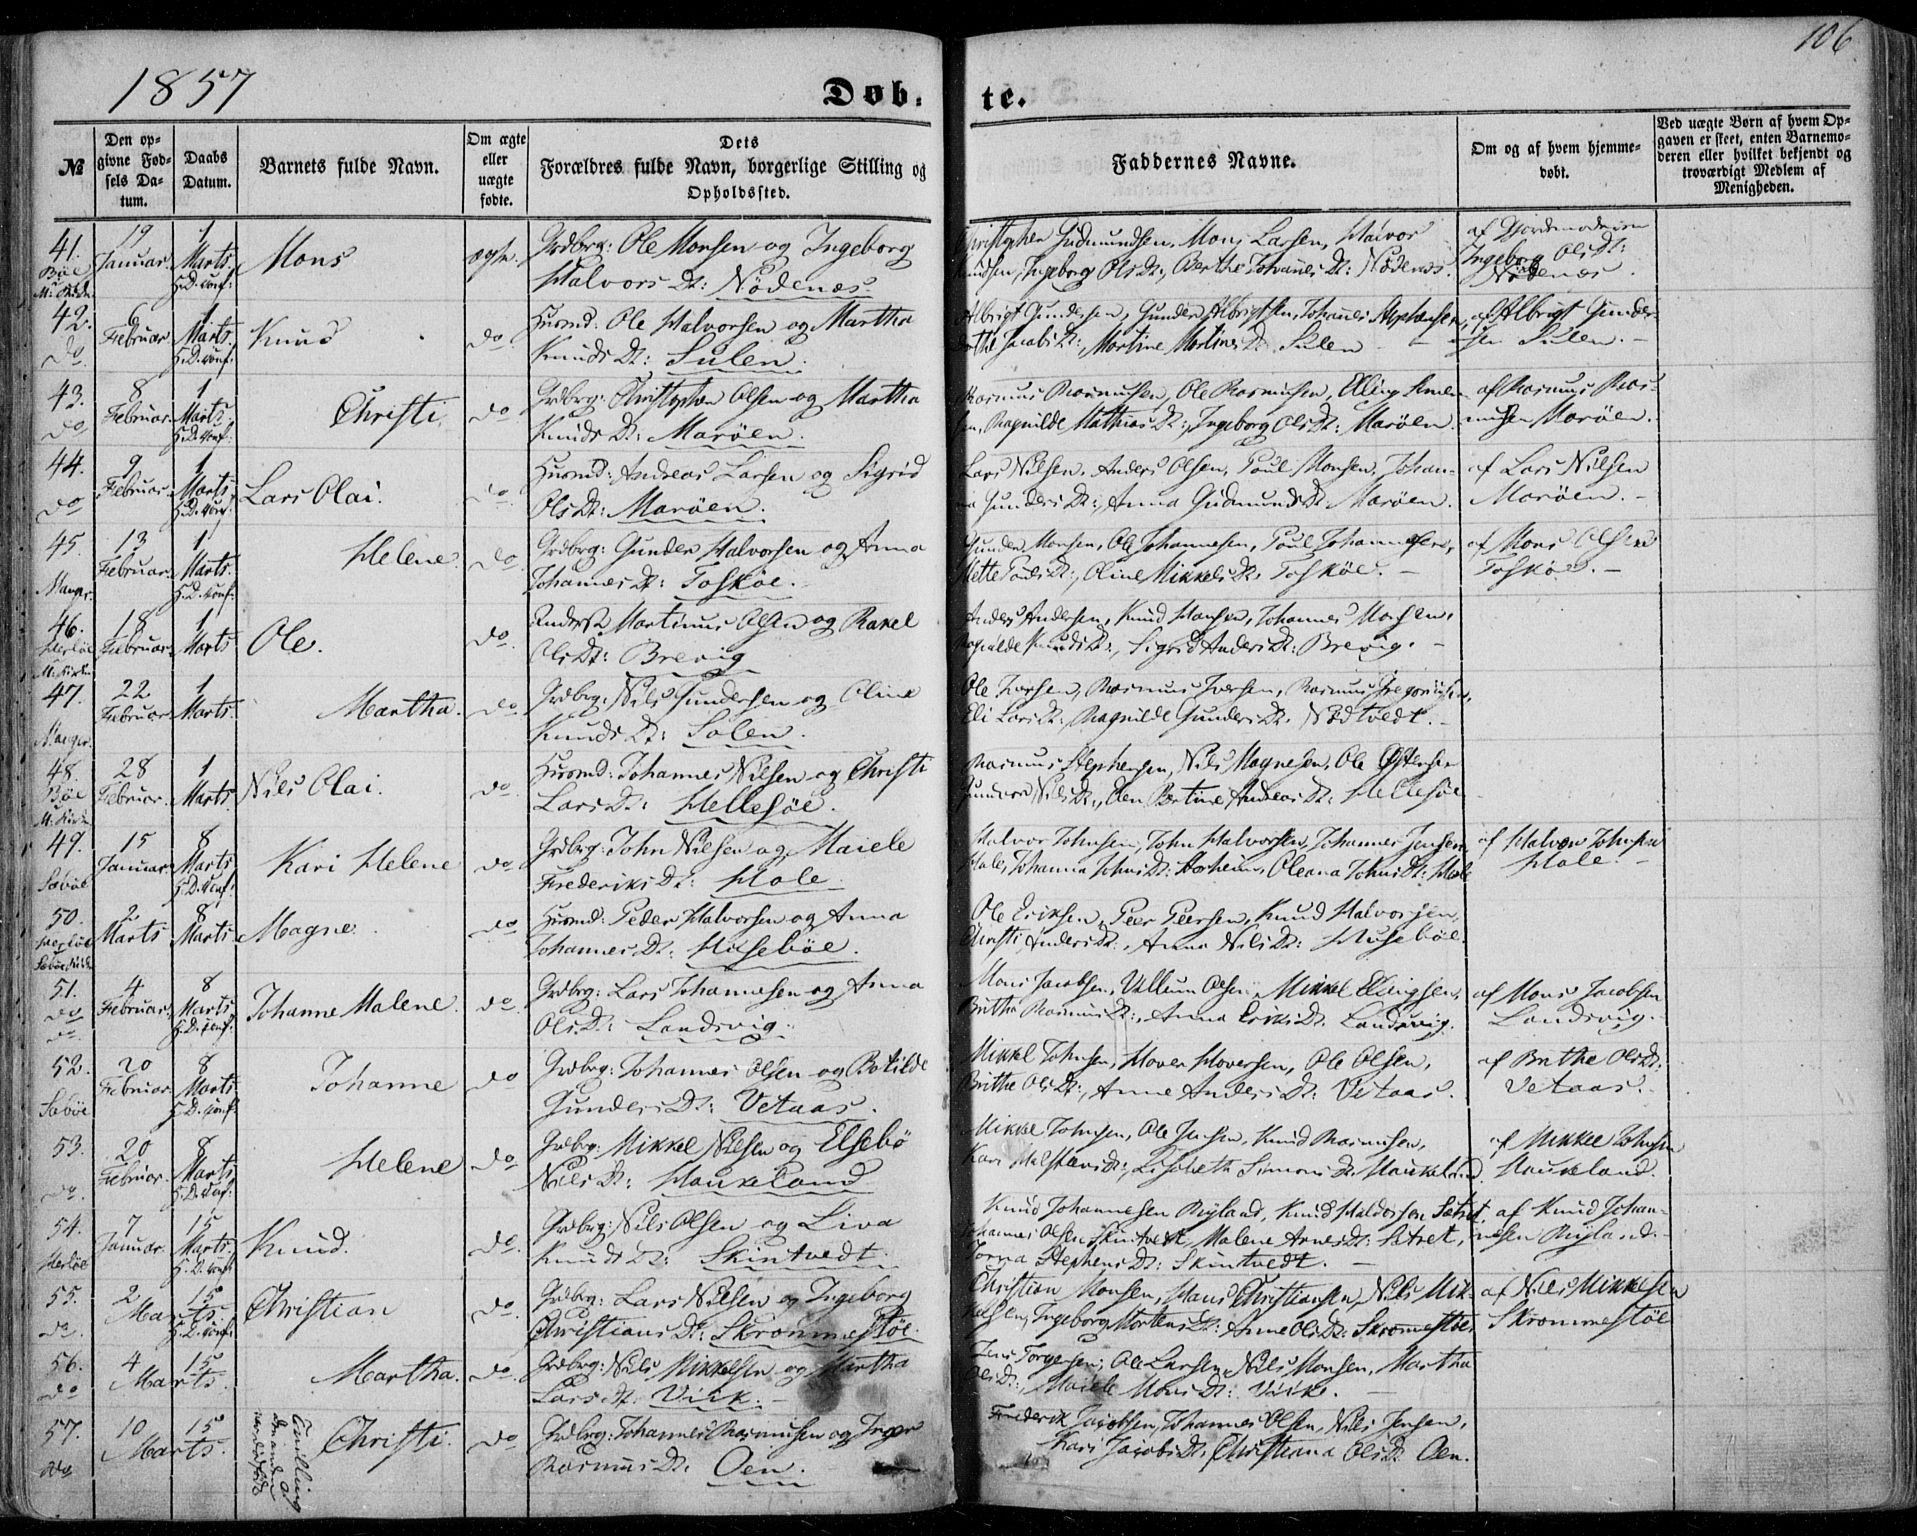 106
1857
Døb- te.
№
Den op-
givne Fød-
sels Da-
tum.
Daabs
Datum.
Barnets fulde Navn.
Om ægte
eller
uægte
fødte.
Dets
Forældres fulde Navn, borgerlige Stilling og
Opholdssted.
Faddernes Navne.
Om og af hvem hjemme-
døbt.
Ved uægte Børn af hvem Op-
gaven er skeet, enten Barnemo-
deren eller hvilket bekjendt og
troværdigt Medlem af
Menigheden.
41. 19 Januar 1 Marts Mons ægte. Grdbrg: Ole Monsen og Ingeborg
Halvors Dt: Nødenæs
Gudmundsen, Mons Larsen, Halvor
Knudsen, Ingeborg Ols Dt:, Berthe Johannes Dt: Nødenæs.
af Jordemoderen
Ingeborg Ols Dt:
Nødenæs.
42. do 6 Februar 1 Marts Knud do Husmd: Ole Halvorsen og Martha
Knuds Dt: Sulen.
Albrigt Gundersen, Gunder Albrigtsen, Johannes Stephensen,
Jacobs Dt:, Martine Mortins Dt: Sulen
af Albrigt Gunder-
sen Sulen.
43. do 8 Februar 1 Marts Christi. do Grdbrg: Christopher Olsen og Martha
Knuds Dt: Marøen.
Rasmus Rasmussen, Ole Rasmussen, Elling
Ragnilde Mathias Dt:, Ingeborg Ols Dt: Marøen.
af Rasmus Ras-
mussen Marøen.
44. do 9 Februar 1 Marts Lars Olai. do Husmd: Andreas Larsen og Sigrid
Ols Dt: Marøen.
Lars Nilsen, Anders Olsen, Poul Monsen, Johan-
na Gunders Dt:, Anna Gudmunds Dt: Marøen.
af Lars Nilsen
Marøen.
45. Manger 13 Februar 1 Marts Helene. do Grdbrg: Gunder Halvorsen og Anna
Johannes Dt: Toskøe.
Gunder Monsen, Ole Johannesen, Poul Johannesen,
Mette Pouls Dt:, Oline Mikkels Dt: Toskøe.
af Mons Olsen
Toskøe.
46. Herløe 18 Februar 1 Marts Ole. do Martinus Olsen og Rakel
Ols Dt: Brevig
Anders Andersen, Knud Hansen, Johannes Monsen,
Ragnilde Knuds Dt:, Sigrid Anders Dt: Brevig.
47. Manger 22 Februar 1 Marts Martha. do Grdbrg: Nils Gundersen og Oline
Knuds Dt: Solen.
Ole Iversen, Rasmus Iversen, Rasmus Gregoriusen,
Eli Lars Dt: Ragnilde Gunders Dt: Nødtvedt.
48. Bøe 28 Februar 1 Marts Nils Olai. do Husmd: Johannes Nilsen og Christi
Lars Dt: Hellesøe.
Rasmus Stephensen, Nils Magnesen, Ole Østensen
Nils Dt:, Bertine Andreas Dt: Hellesøe
49. Sæbøe 15 Januar 8 Marts Kari Helene do Grdbrg: John Nilsen og Maiele
Frederiks Dt: Hole.
Halvor Johnsen, John Halvorsen, Johannes Jensen
Hole, Johanna Johns Dt: Aasheim, Oleana Johns Dt: Hole
af Halvor Johnsen
Hole.
50. Herløe 2 Marts 8 Marts Magne. do Husmd: Peder Halvorsen og Anna
Johannes Dt: Husebøe.
Ole Eriksen, Peer Peersen, Knud Halvorsen,
Christi Anders Dt:, Anna Nils Dt: Husebøe.
51. do 4 Februar 8 Marts Johanne Malene. do Grdbrg: Lars Johannesen og Anna
Ols Dt: Landsvig.
Mons Jacobsen, Villum Olsen, Mikkel Ellingsen,
Brithe Rasmus Dt:, Anna Eriks Dt: Landsvig.
af Mons Jacobsen
Landsvig.
52. Sæbøe 20 Februar 8 Marts Johanne do Grdbrg: Johannes Olsen og Botilde
Gunders Dt: Vetaas.
Mikkel Johnsen, Hover Hoversen, Ole Olsen,
Brithe Ols Dt:, Anne Anders Dt: Vetaas.
af Brithe Ols Dt:
Vetaas.
53. do 20 Februar 8 Marts Helene do Grdbrg: Mikkel Nilsen og Elsebø
Nils Dt: Haukeland
Mikkel Johnsen, Ole Jensen, Knud Rasmussen,
Kari Dt:, Lisabeth Simons Dt: Haukeland
af Mikkel Johnsen
Haukeland.
54. Herløe 7 Januar 15 Marts Knud. do Grdbrg: Nils Olsen og Liva
Knuds Dt: Skintvedt.
Knud Johannesen Rylaad, Knud Haldorsen Sætret,
Johannes Olsen Skintvedt, Malene Arnes Dt: Sætret,
Stephens Dt: Skintvedt.
af Knud Johan-
nesen Ryland.
55. do 2 Marts 15 Marts Christian do Grdbrg: Lars Nilsen og Ingeborg
Christians Dt: Skrommestøe.
Christian Monsen, Hans Christiansen, Nils Mik-
kelsen, Ingeborg Mortens Dt: Anne Ols Dt: Skrommestøe.
af Nils Mikkelsen
Skrommestøe
56. do 4 Marts 15 Marts Martha. do Grdbrg: Nils Mikkelsen og Martha
Lars Dt: Viik.
Jens Torgersen, Ole Larsen, Nils Monsen, Martha
Ols Dt:, Maiele Mons Dt: Viik.
57. do 10 Marts 15 Marts Christi. do Grdbrg: Johannes Rasmussen og Inger
Rasmus Dt: Oen.
Tvilling
den anden
var dødfødt
Frederik Jacobsen, Johannes Olsen, Nils Jensen,
Kari Jacobs Dt:, Christiana Ols Dt: Oen.